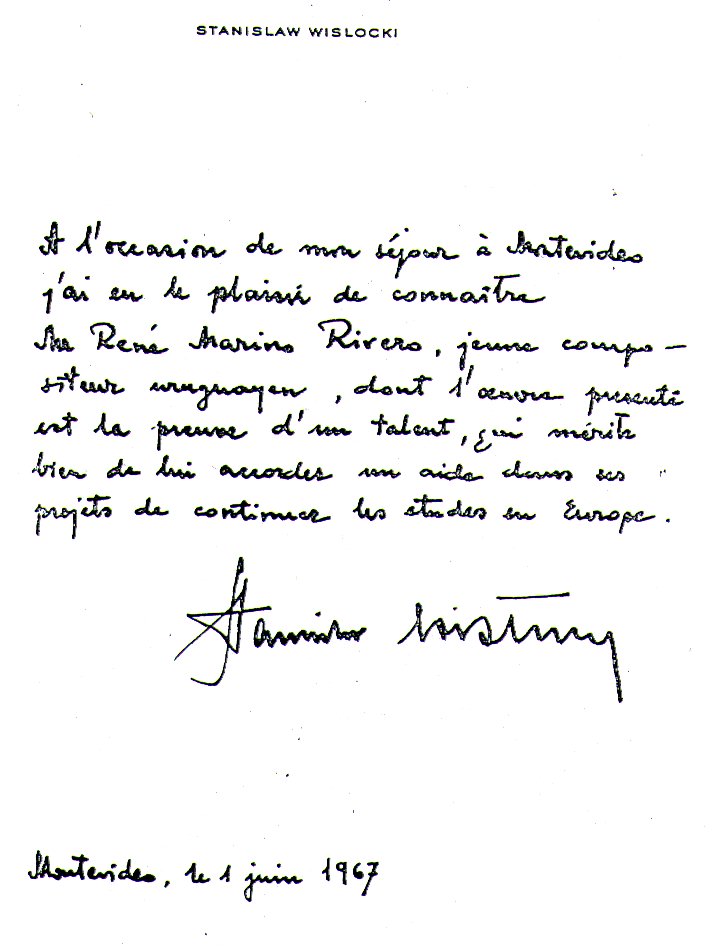 STANISLAW WISLOCKI
A l'occasion de mon séjour à Montevideo
j'ai eu le plaisir de connaître
Mr René Marino Rivero, jeune compo-
siteur uruguayen, dont l'oeuvre presenté
est la preuve d'un talent, qui mérite
bien de lui accorder un aide dans ses
projets de continuer les études en Europe.
Stanislaw Wislocki
Montevideo, le 1 juin 1967